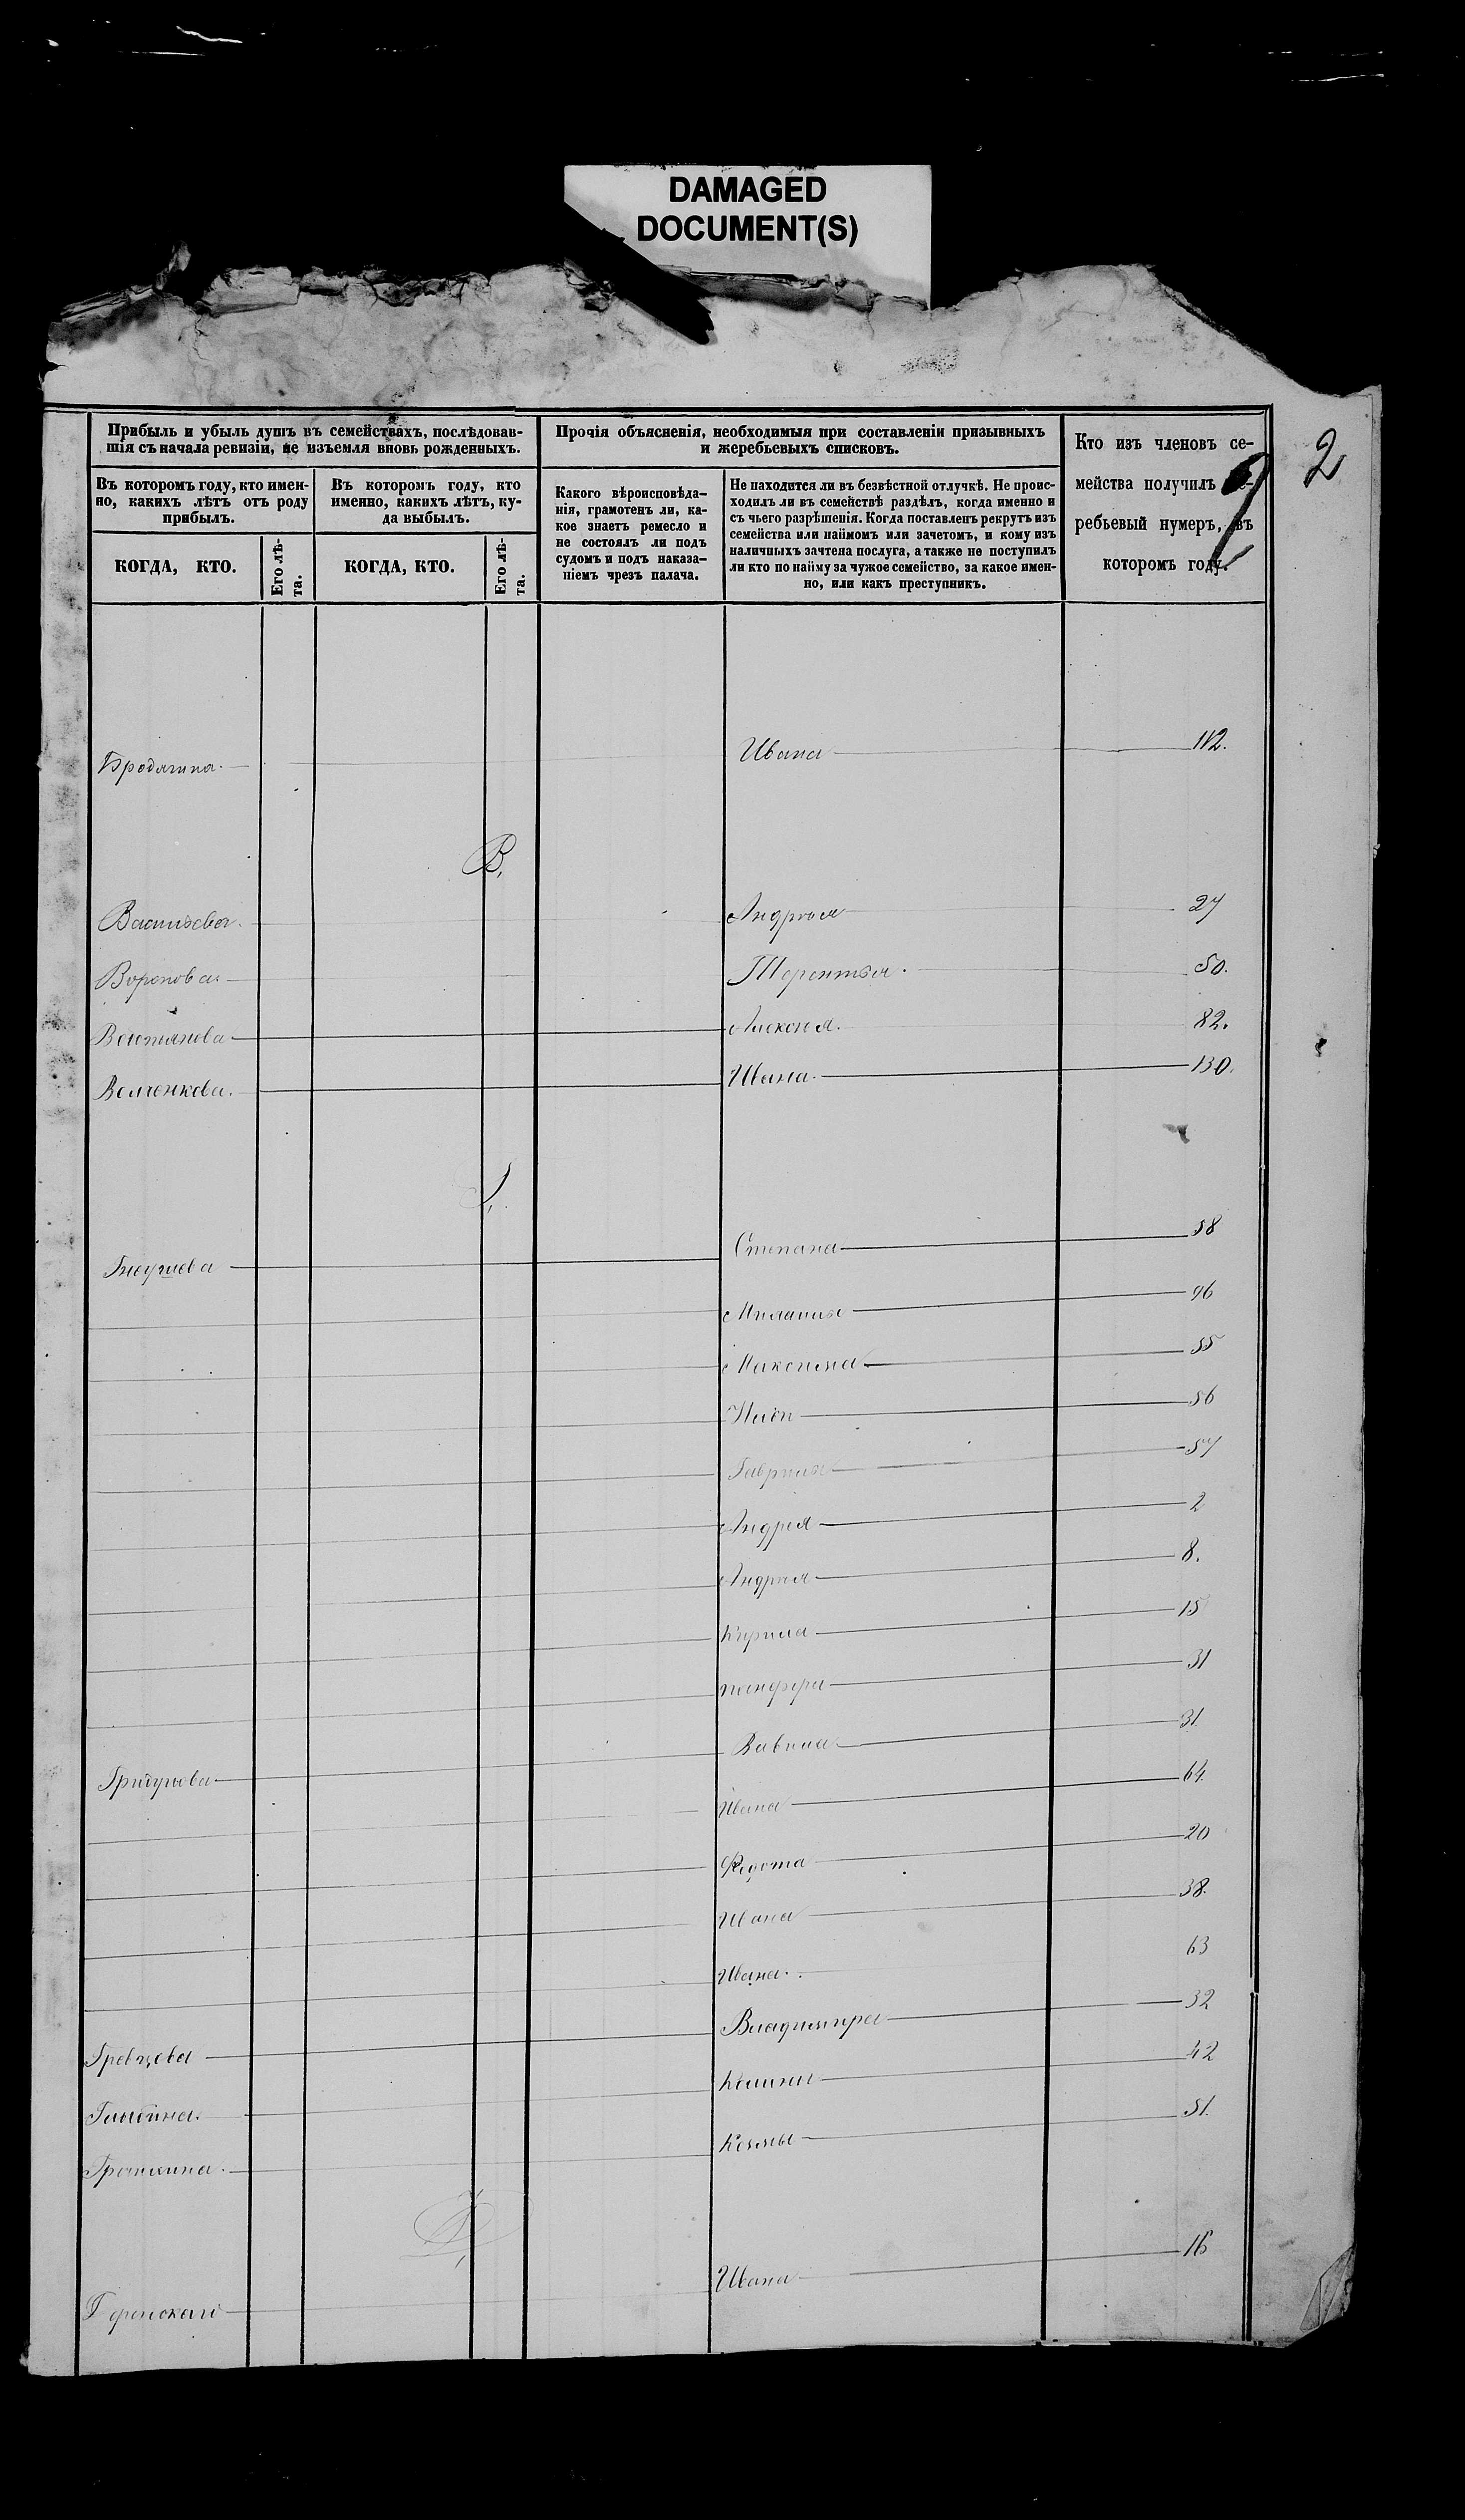 DAMAGED
DOCUMENT(S)
2
Прибыль и убыль душъ въ семействахъ, послѣдовав-
шія съ начала ревизіи, не изъемля вновь рожденныхъ.
Прочія объясненія, необходимыя при составленіи призывныхъ
и жеребьевыхъ списковъ.
Кто изъ членовъ се-
мейства получилъ
ребьевый нумеръ, въ
которомъ году.
Въ которомъ году, кто имен-
но, какихъ лѣтъ отъ роду
прибылъ.
Въ которомъ году, кто
именно, какихъ лѣтъ, ку-
да выбылъ.
Какого вѣроисповѣда-
нія, грамотенъ ли, ка-
кое знаетъ ремесло и
не состоялъ ли подъ
судомъ и подъ наказа-
ніемъ чрезъ палача.
Не находится ли въ безвѣстной отлучкѣ. Не проис-
ходилъ ли въ семействѣ раздѣлъ, когда именно и
съ чьего разрѣшенія. Когда поставленъ рекрутъ изъ
семейства или наймомъ или зачетомъ, и кому изъ
наличныхъ зачтена послуга, а также не поступилъ
ли кто по найму за чужое семейство, за какое имен-
но, или какъ преступникъ.
КОГДА, КТО.
Его лѣ-
та.
КОГДА, КТО.
Его лѣ-
та.
Бродягина. Ивана 112.
В.
Васильева. Андрея 27
Воронова Терентья. 50.
Алексея. 82.
Волченкова. Ивана. 130.
Г.
Гнеушева Степана 58
96
Максима 55
56
Гаврилы 57
Андрея 2
Андрея 8.
Кирила 15
31
Вавила 31
Ивана 64.
Федота 20
Ивана 38.
Ивана. 63
Гревцова Владимира 32
Глыбина. 42
Козмы 51.
Д.
Ивана 16